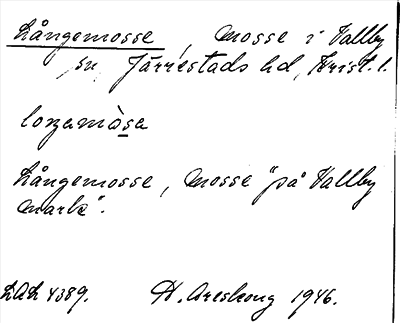 Långemosse, mosse i Vallby
sn Järrestads hd, Krist. l.
loŋemòsa
Långemosse, mosse "på Vallby
mark".
LAL 4389. H. Areskoug 1946.